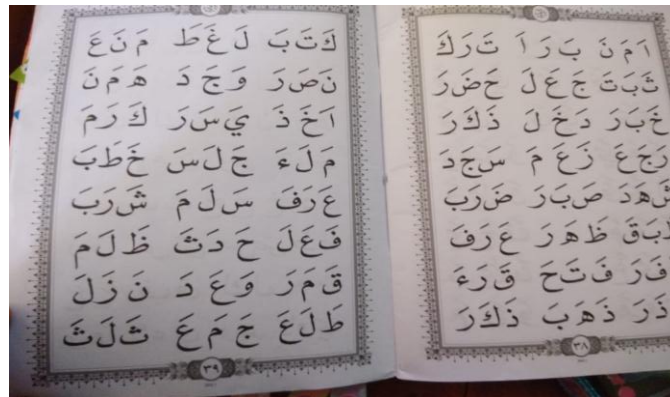 اَمَنَ بَرَاَ تَرَكَ
ثَبَتَ جَعَلَ حَضَرَ
خَبَرَ دَخَلَ ذَكَرَ
رَجَعَ زَعَمَ سَجَدَ
صَبَرَ ضَرَبَ
ظَهَرَ عَرَفَ
فَتَحَ قَرَءَ
ذَهَبَ ذَكَرَ
٣٨
كَتَبَ لَغَطَ مَنَعَ
نَصَرَ وَجَدَ هَمَنَ
اَخَذَ يَسَرَ كَرَمَ
مَلَءَ جَلَسَ خَطَبَ
عَرَفَ سَلَمَ شَرَبَ
فَعَلَ حَدَثَ ظَلَمَ
قَمَرَ وَعَدَ نَزَلَ
طَلَعَ جَمَعَ ثَلَثَ
٣٩